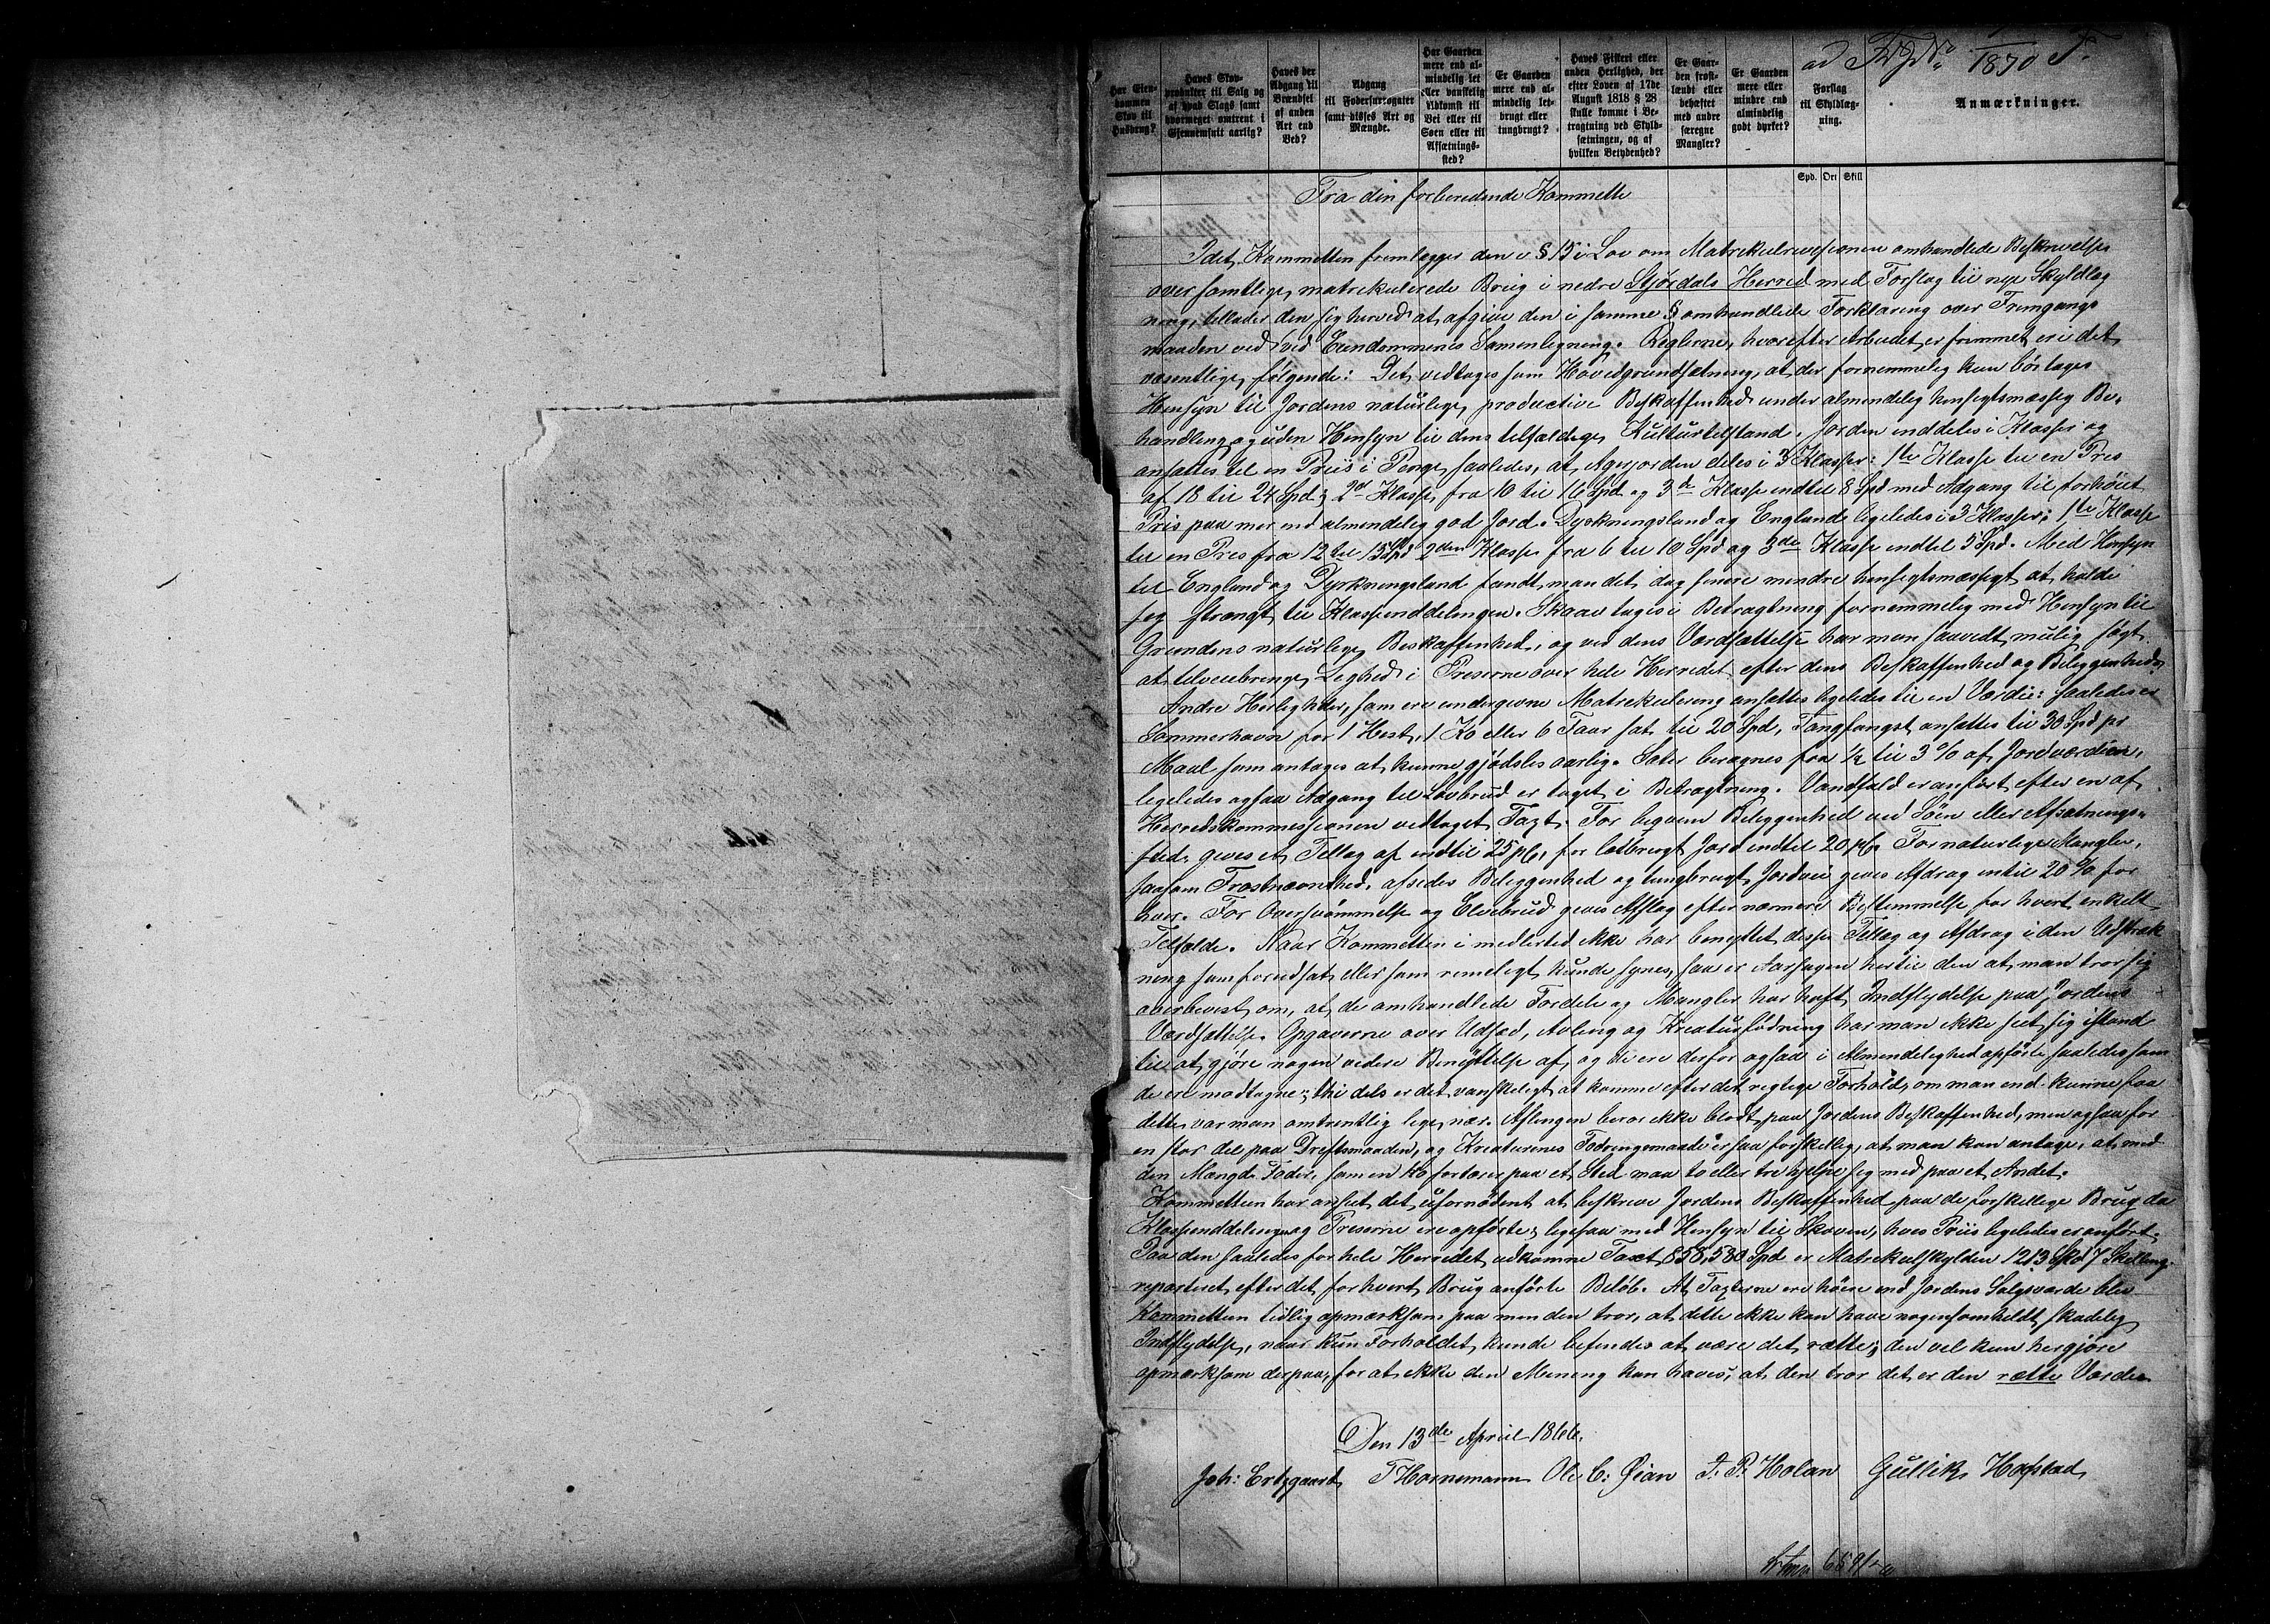 ad
1870 F.
Har Eien-
dommen
Skov til
Husbrug?
Haves Skov-
produkter til Salg og
af hvad Slags samt
hvormeget omtrent i
Gjennemsnit aarlig?
Haves der
Adgang til
Brændsel
af anden
Art end
Ved?
Adgang
til Fodersurrogater
samt disses Art og
Mængde.
Har Gaarden
mere end al-
mindelig let
eller vanskelig
Adkomst til
Vei eller til
Søen eller til
Afsætnings-
sted?
Er Gaarden
mere end al-
mindelig let-
brugt eller
tungbrugt?
Haves Fiskeri eller
anden Herlighed, der
efter Loven af 17de
August 1818 § 28
skulle komme i Be-
tragtning ved Skyld-
sætningen, og af
hvilken Betydenhed?
Er Gaar-
den frost-
lændt eller
behæftet
med andre
særegne
Mangler?
Er Gaarden
mere eller
mindre end
almindelig
godt dyrket?
Forslag
til Skyldlæg-
ning.
Anmærkninger.
Spd. Ort Skill
Fra din forberedende Kommette
Idet Kommetten fremlægger den i § 15 i Lov om Matrikulrevesionen omhandlede Beskrivelse
over samtlige, matrikulerede Brug i nedre Stjørdals Herred med Forslag til nye Skyldlæg
ning, tillader den sig herved at afgive den i samme § omhandlede Forklaring over Fremgangs
maaden ved ved Eiendommenes Samenligning. Reglerne, hvorefter Arbeidet er frimmet er i det
væsentlige, følgende: Det vedtages som Hovedgrundsætning, at der fornemmelig kun bør tages
Hensyn til Jordens naturlige, productive Beskaffenhed under almendelig hensigtsmæssig Be-
handling, og uden Hensyn til dens tilfældige, Kulturtilstand. Jorden inddeles i Klasser og
ansattes til en Priis i Penge, saaledes, at Agerjorden deles i 3 Klasser: 1te Klasse til en Pris
af 18 til 24 Spd; 2d Klasse, fra 10 til 16 Spd og 3de Klasse indtil 8 Spd med Adgang til forhøiet
Pris paa mer end almendelig god Jord. Dyrkningsland og Englande ligeledes i 3 Klasser; 1te Klasse
til en Pris fra 12 til 15 Spd 2den Klasse fra 6 til 10 Spd og 3de Klasse indtil 5 Spd. Med Hensyn
til England og Dyrkningsland fandt man det dog senere mindre hensigtsmæssigt at holde
seg strængt til Klasseinddelingen. Skoven toges i Betragtning fornemmelig med Hensyn til
Grundens naturlige, Beskaffenhed, og ved dens Værdsættelse har man saavedt mulig søgt
at tilveiebringe, Lighed i Priserne over hele Herredet efter dens Beskaffenhed og Beliggenhed.
Andre Herligheder, som ere undergivne Matrikulering ansattes ligeledes til en Værdie: saaledes er
Sommerhavn for 1 Hest, 1 Ko eller 6 Faar sat til 20 Spd, Tangfangst ansattes til 30 Spd pr
Maal som antages at kunne gjødsles aarlig. Sæter beregnes fra ½ til 3 % af Jordværdien,
ligeledes ogsaa Adgang til Løvbrud er taget i Betragtning. Vandfald er anført efter en af
Herredskommessionen vedtaget Taxt. For beqvem Beliggenhed ved Søen eller Afsætnings-
sted gives et Tillæg af indtil 25 pC, for letbrugt Jord indtil 20 pC. For naturlige Mangler,
saasom Frostnævnthed, afsides Beliggenhed og tungbrugt Jordvei gives Afdrag intil 20 % for
hver. For Oversvømmelse og Elvebrud gives Afslag efter nærmere Bestemmelse for hvert enkelt
Tilfælde. Naar Kommetten i medlertid ikke har benyttet disse Tillæg og Afdrag i den Udstræk
ning som forudsat eller som rimeligt kunde synes, saa er Aarsagen hertil den at man tror sig
overbevist om, at de omhandlede Fordele og Mangler har haft Indflydelse paa Jordens
Værdsættelse. Opgaverne over Udsæd, Avling og Kreaturfødning har man ikke seet sig istand
til at gjøre nogen videre Benyttelse af, og de ere derfor ogsaa i Almendelighed opførte saaledes som
de ere modtagne; thi dels er det vanskeligt at komme efter det regtige Forhold, om man end kunne faa
dette, var man omtrentlig lige, nær. Aflingen beror ikke blodt paa Jordens Beskaffenhed, men ogsaa for
en stor del paa Driftsmaaden, og Kreaturenes Fodringsmaade er saa forskellig, at man kan antage, at med
den Mængde Foder, som en Ko fortærer paa et Sted maa to eller tre hjelpe sig med paa et Andet.
Kommetten har anseet det ufornødent at beskrive Jordens Beskaffenhed paa de forskellige Brug da
Klasseinddelingen og Priserne ere opførte; ligesaa med Hensyn til Skoven, hves Priis ligeledes er anført.
Paa den saaledes for hele Herredet udkomne Taxt 858,580 Spd er Matrikulskylden 1213 Skd 7 Skilling
reparteret efter det for hvert Brug anførte Beløb. At Taxterne ere høiere end Jordens Salgsværde blev
Kommetten tidlig opmærksom paa men den tror, at dette ikke kan have nogensomheldt skadelig
Indflydelse, naar kun Forholdet kunde befindes at være det rætte; den vel kun hergjøre
opmærksom derpaa, for at ikke den Mening kan haves, at den tror det er den rætte Værdie.
Den 13de April 1866.
Joh: Ertsgaard T Hornemann Ole C: Øian P. Holan Gullik Hafstad